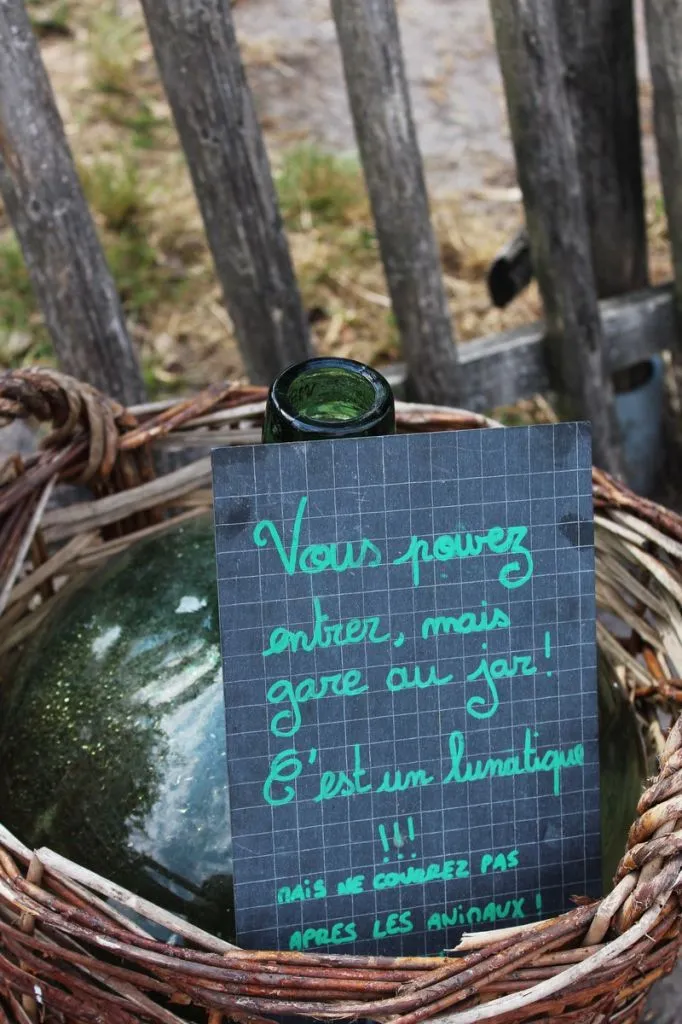 Vous pouvez
entrer, mais
gare au jar!
C'est un lunatique
!!!
MAIS NE COUREZ PAS
APRES LES ANIMAUX!